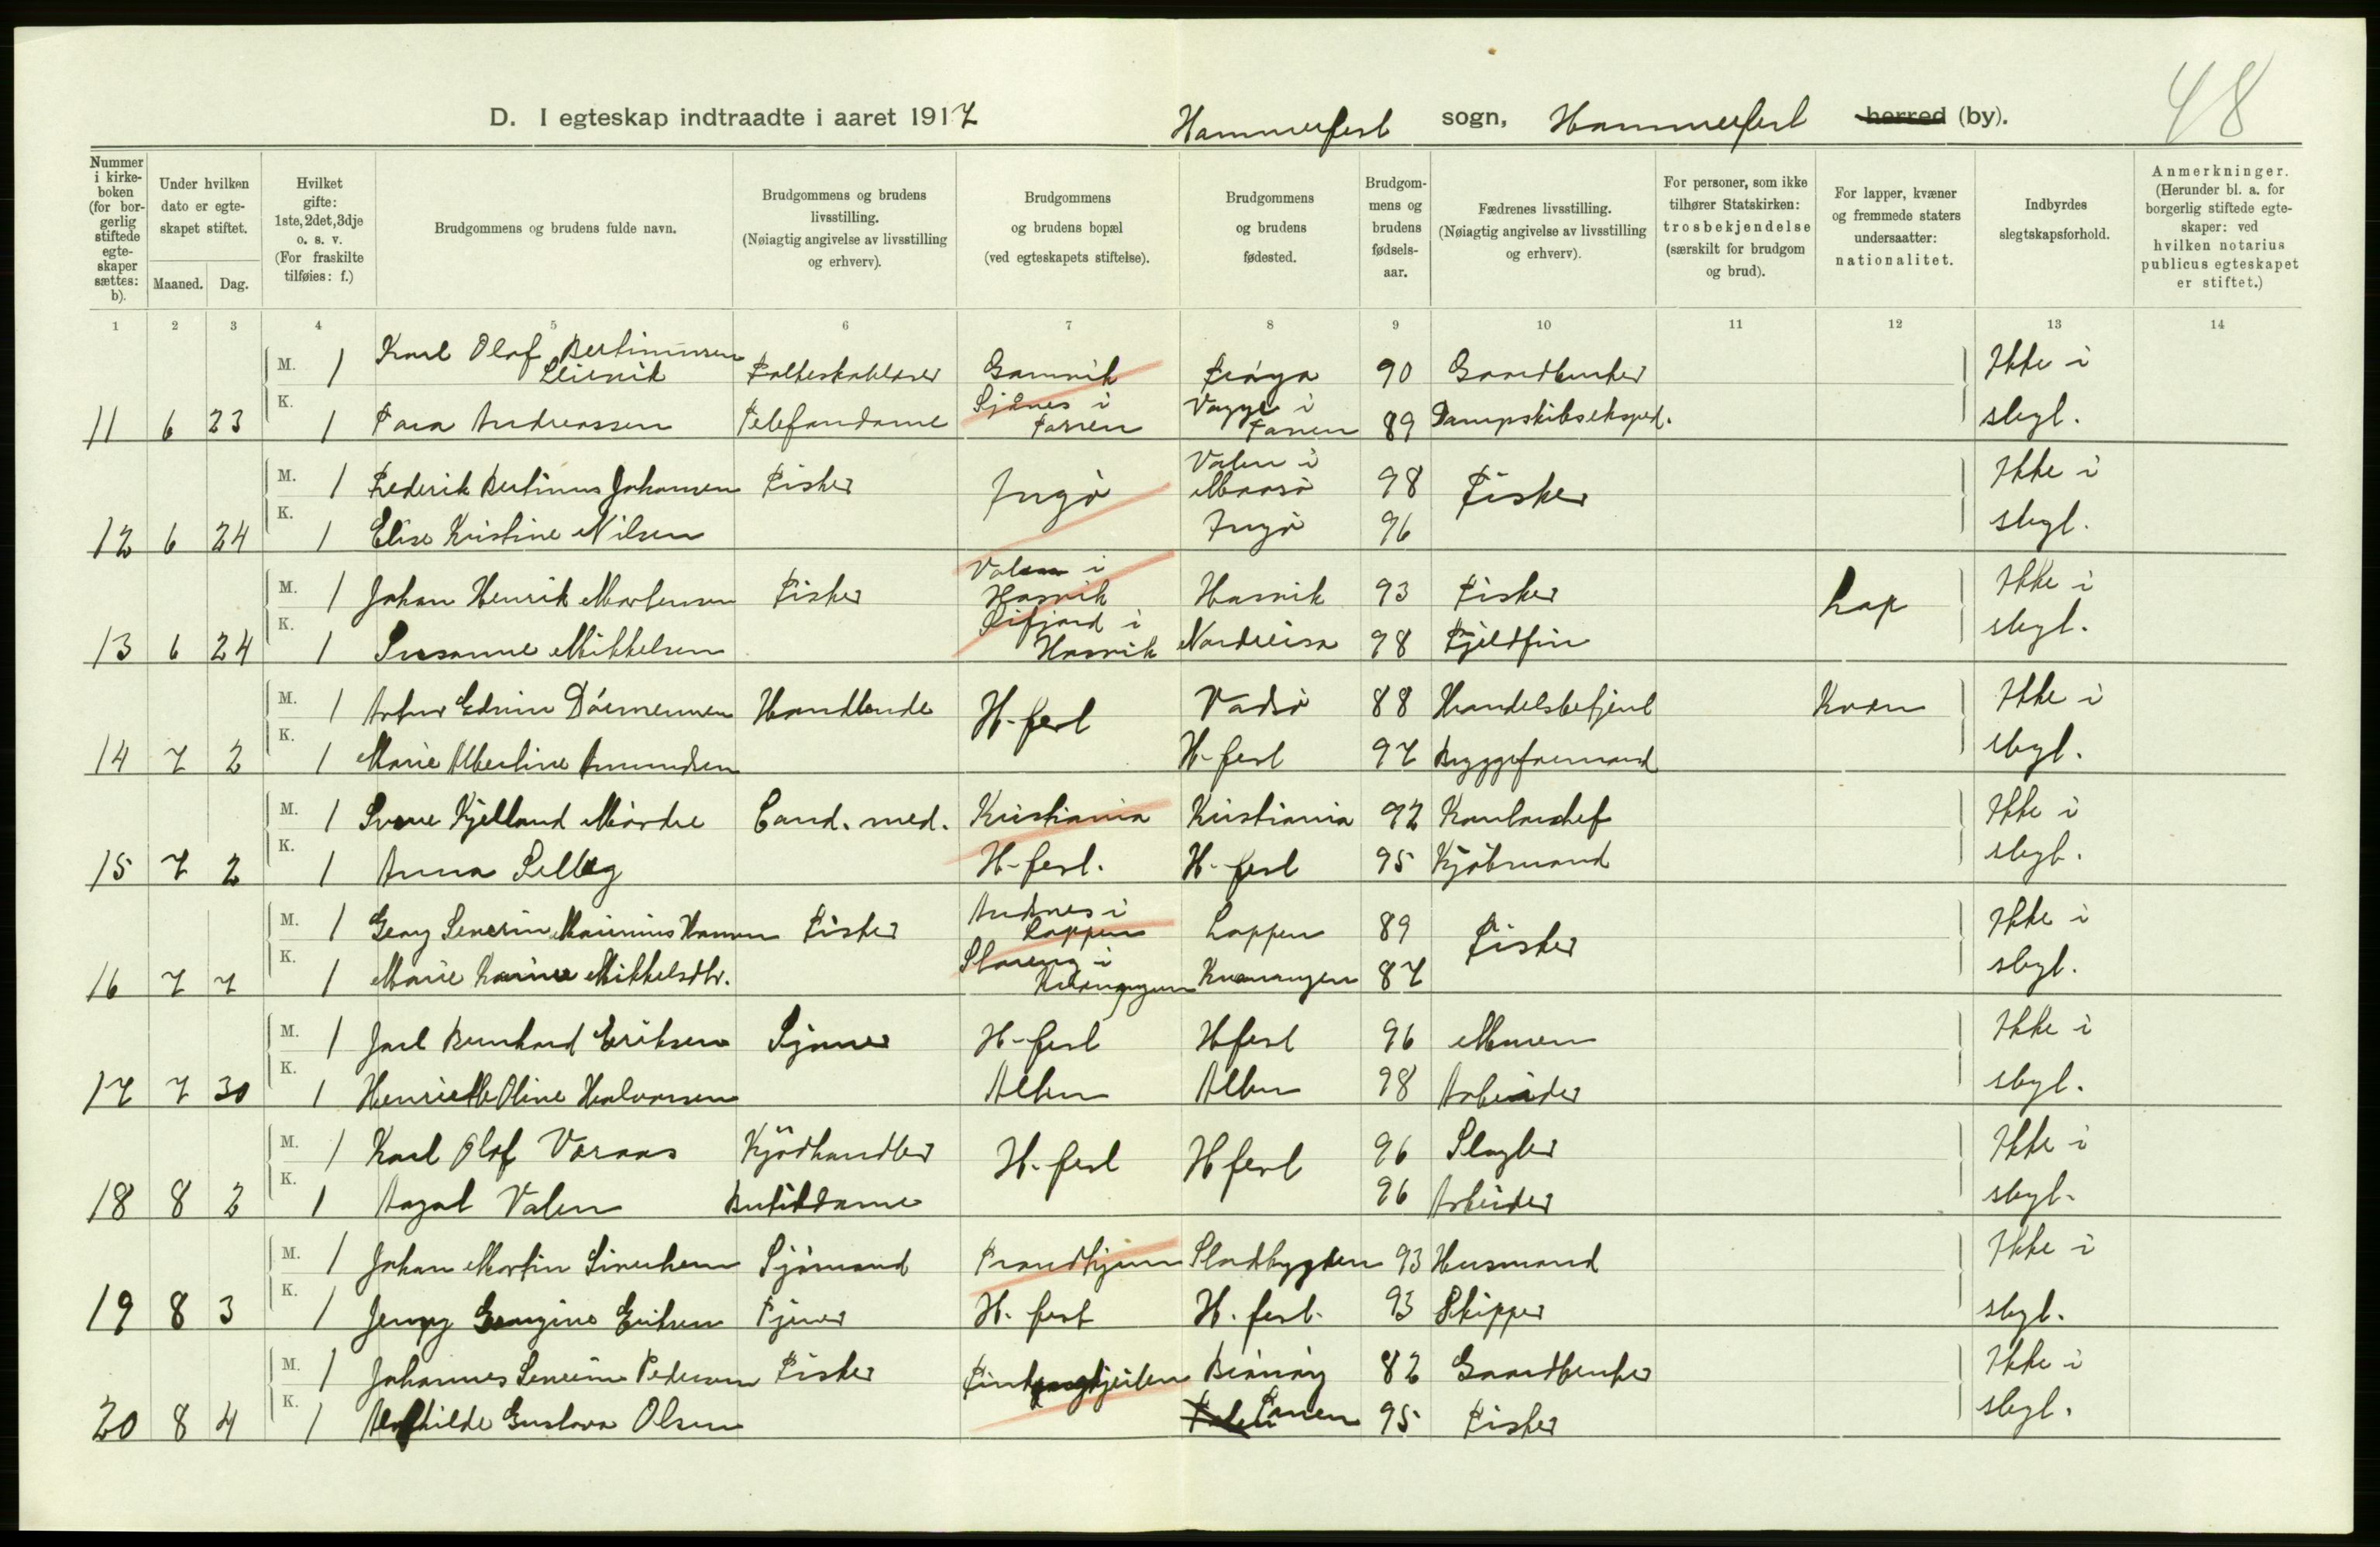 48
D. I egteskap indtraadte i aaret 1917 Hammerfest sogn, Hammerfest herred (by).
Nummer i kirkeboken (for borgerlig stiftede egteskaper sættes: b).
Under hvilken dato er egteskapet stiftet.
Maaned. Dag.
Hvilket gifte: 1ste, 2det, 3dje o. s. v. (For fraskilte tilføies: f.)
Brudgommens og brudens fulde navn.
Brudgommens og brudens livsstilling. (Nøiagtig angivelse av livsstilling og erhverv).
Brudgommens og brudens bopæl (ved egteskapets stiftelse).
Brudgommens og brudens fødested.
Brudgommens og brudens fødselsaar.
Fædrenes livsstilling. (Nøiagtig angivelse av livsstilling og erhverv).
For personer, som ikke tilhører Statskirken: trosbekjendelse (særskilt for brudgom og brud).
For lapper, kvæner og fremmede staters undersaatter: nationalitet.
Indbyrdes slegtskapsforhold.
Anmerkninger. (Herunder bl. a. for borgerlig stiftede egteskaper: ved hvilken notarius publicus egteskapet er stiftet.)
1 2 3 4 5 6 7 8 9 10 11 12 13 14
M. 1 Karl Olof Bertinussen
Folkeskolelærer Gamvik 90 Gaardbruker Ikke i
Sjånes i Vagge i
11 6 23 K. 1 Tora Andreassen Telefondame Tanen Tanen 89 Dampskibseksped. slegt.
Valen i
M. 1 Frederik Bertinus Johansen Fisker Ingø Maasø 98 Fisker Ikke i
12 6 24 K. 1 Elise Kristine Nilsen Ingø 96 slegt.
Valen i
M. 1 Johan Henrik Mortensen Fisker Hasvik Hasvik 93 Fisker Lap Ikke i
Fifjord i
13 6 24 K. 1 Susanne Mikkelsen Hasvik Nordreisa 98 Fjeldfin slegt.
M. 1 Artur Edvin Handlende H-fest Vadsø 88 Handelsbetjent Kvæn Ikke i
14 7 2 K. 1 Marie Albertine Amundsen H-fest 97 Byggeformand slegt.
M. 1 Sverre Kjelland Mørdre Cand. med. Kristiania Kristiania 92 Kontorchef Ikke i
15 7 2 K. 1 Anna H-fest. H-fest 95 Kjøbmand slegt.
Andnes i
M. 1 Georg Severin Marinius Hansen Fisker Loppen Loppen 89 Fisker Ikke i
i
16 7 7 K. 1 Marie Karine Mikkelsdtr. Kvænangen Kvænangen 87 slegt.
M. 1 Jarl Bernhard Eriksen H-fest Hfest 96 Murer Ikke i
17 7 30 K. 1 Henriette Oline Halvorsen Alten Alten 98 Arbeider slegt.
M. 1 Karl Olof Voraas Kjødhandler H-fest Hfest 96 Slagter Ikke i
18 8 2 K. 1 Aagot Valen Butikdame 96 Arbeider slegt.
M. 1 Johan Martin Sjømand Trondhjem Stadsbygden 93 Husmand Ikke i
19 8 3 K. 1 Jenny Georgine Eriksen Tjener H-fest H. fest. 93 Skipper slegt.
M. 1 Johannes Severin Pedersen Fisker Finkongkjeilen Brønøy 82 Gaardbruker Ikke i
20 8 4 K. 1 Alfhilde Gustava Olsen Tanen 95 Fisker slegt.